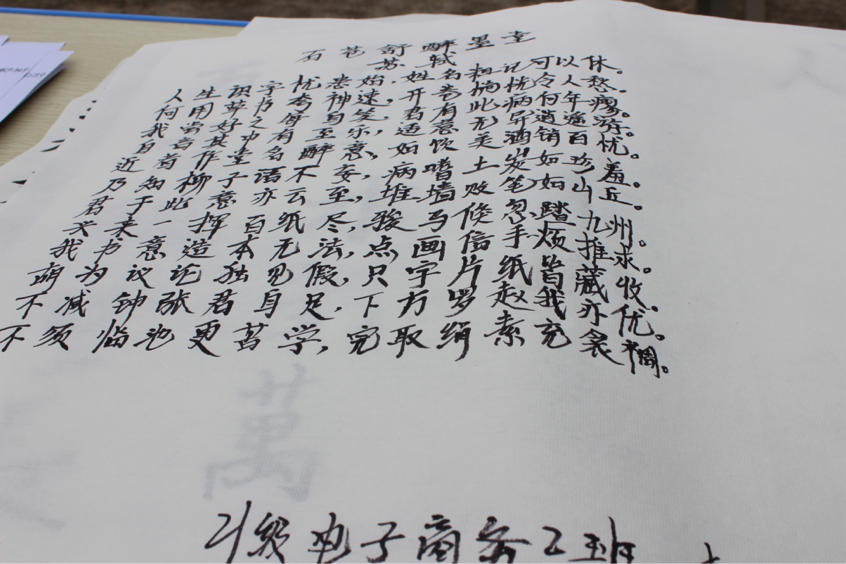 石苍舒醉墨堂
苏轼
人生识字忧患始,姓名粗记可以休。
何用草书夸神速,开卷惝恍令人愁。
我尝好之每自笑,君有此病何年瘳。
自言其中有至乐,适意无异逍遥游。
近者作堂名醉意,如饮美酒销百忧。
乃知柳子语不妄,病嗜土炭如珍羞。
君于此意亦云至,堆墙败笔如山丘。
兴来挥百纸尽,骏马倏忽踏九州。
我书意造本无法,点画信手烦推求。
胡为议论独见假,只字片纸皆藏收。
不减钟张君自足,下方罗赵我亦优。
不须临池更苦学,完取绢素充衾裯。
21级电子商务2班